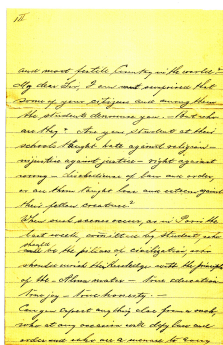 III
and most fertile Country in the world?
My dear Sir, I am not surprised that
some of your citizens and among them
the students denounce you - But who
are they? Are your student at these
schools taught hate against religion -
injustice against justice - right against
wrong - disobedience of law and order,
or are them taught love and
their fellow creatures?
When such scenes occur, as in
last week, committed by students who
should
be the pillars of civilization, and
should enrich the knowledge with the principles
of the Alma mater - love education
love joy - love honesty. -
Can you expect anything else from a
who at any occasion will defy law and
order and who are a menace to every